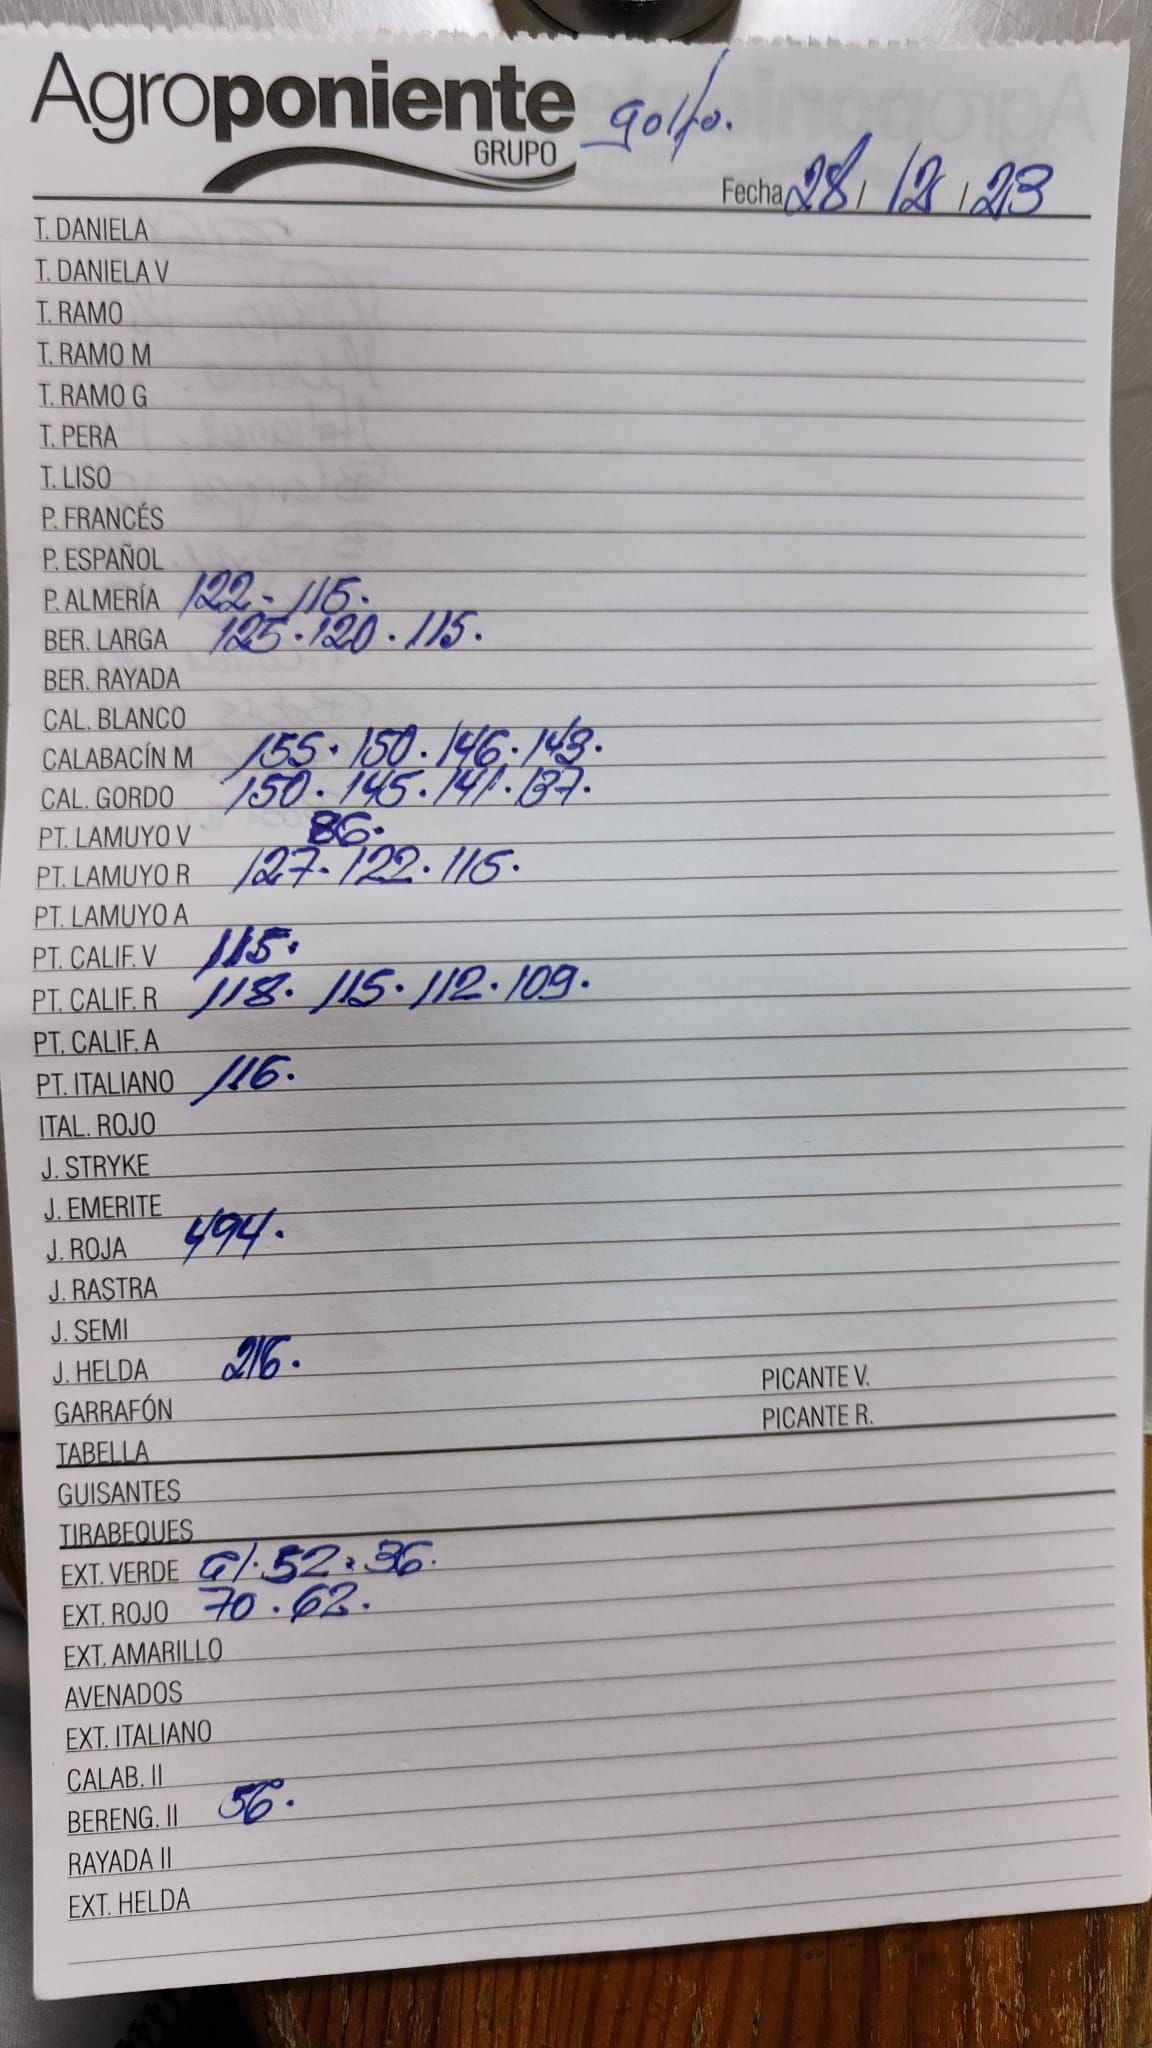 Agroponiente
GRUPO
golfo.
Fecha 28 / 12 / 23
T. DANIELA
T. DANIELA V
T. RAMO
T. RAMO M
T. RAMO G
T. PERA
T. LISO
P. FRANCÉS
P. ESPAÑOL
P. ALMERÍA 122. 115.
BER. LARGA 125. 120. 115.
BER. RAYADA
CAL. BLANCO
CALABACÍN M 155. 150. 146. 143.
CAL. GORDO 150. 145. 141. 137.
PT. LAMUYO V 86.
PT. LAMUYO R 127. 122. 115.
PT. LAMUYO A
PT. CALIF. V 115.
PT. CALIF. R 118. 115. 112. 109.
PT. CALIF. A
PT. ITALIANO 116.
ITAL. ROJO
J. STRYKE
J. EMERITE
J. ROJA 494.
J. RASTRA
J. SEMI
J. HELDA 216.
PICANTE V.
GARRAFÓN
PICANTE R.
TABELLA
GUISANTES
TIRABEQUES
EXT. VERDE 61. 52. 36.
EXT. ROJO 70. 62.
EXT. AMARILLO
AVENADOS
EXT. ITALIANO
CALAB. II
BERENG. II 56.
RAYADA II
EXT. HELDA